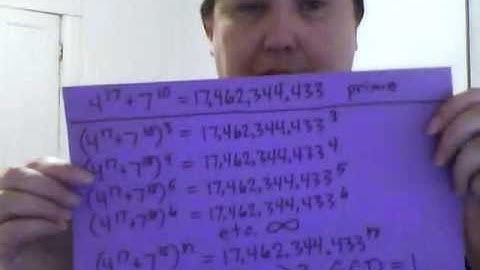 4^17 + 7^10 = 17,462,344,433 prime
(4^17+7^10)^3 = 17,462,344,433^3
(4^17+7^10)^4 = 17,462,344,433^4
(4^17+7^10)^5 = 17,462,344,433^5
(4^17+7^10)^6 = 17,462,344,433^6
etc. ∞
(4^17+7^10)^n = 17,462,344,433^n
GCD = 1